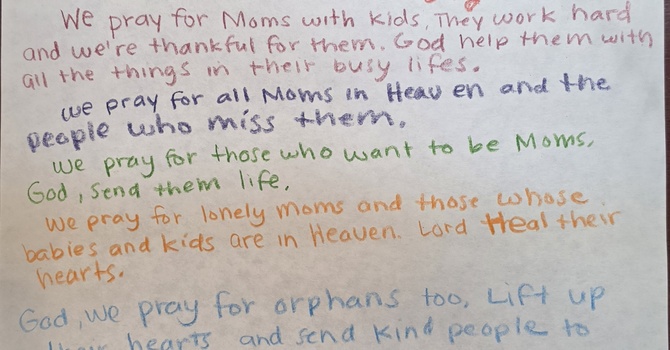 We pray for Moms with kids. They work hard
and we're thankful for them. God help them with
all the things in their busy lifes.
we pray for all Moms in Heav en and the
people who miss them.
we pray for those who want to be Moms.
God, send them life.
we pray for lonely moms and those whose
babies and kids are in Heaven. Lord Heal their
hearts.
God, we pray for orphans too. Lift up
their hearts and send kind people to